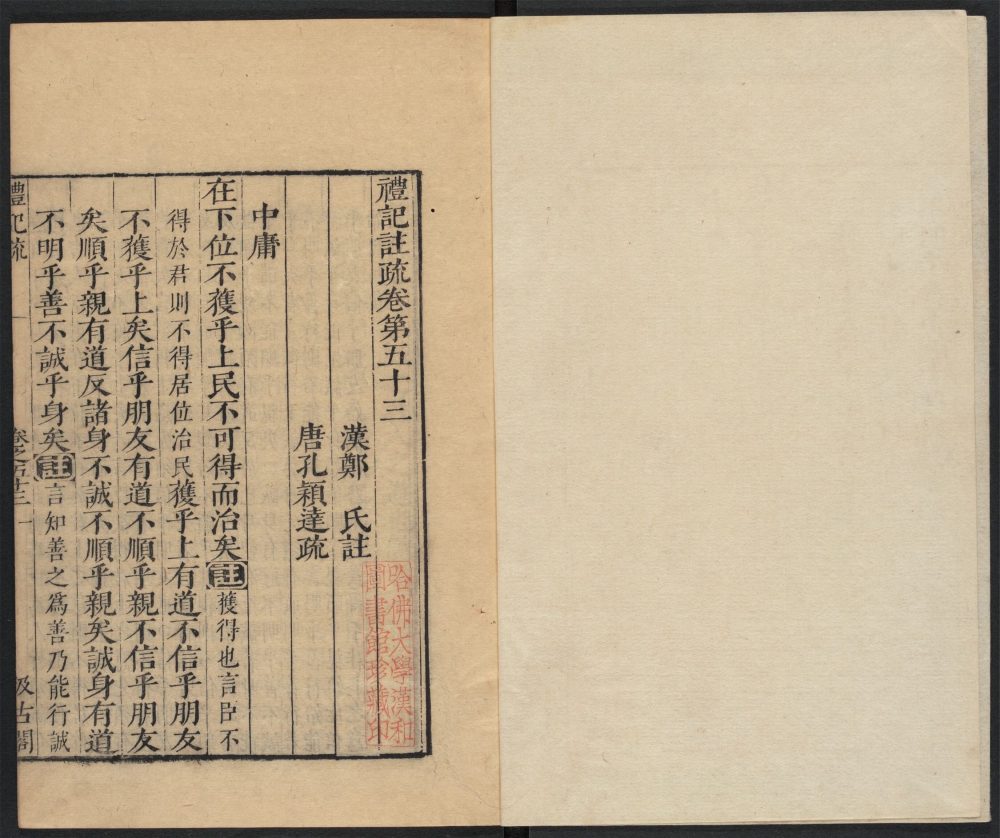 禮記註疏卷第五十三
漢鄭 氏註
唐孔穎達疏
中庸
在下位不獲乎上民不可得而治矣註獲得也言臣不
得於君則不得居位治民獲乎上有道不信乎朋友
不獲乎上矣信乎朋友有道不順乎親不信乎朋友
矣順乎親有道反諸身不誠不順乎親矣誠身有道
不明乎善不誠乎身矣註言知善之爲善乃能行誠
禮記疏 卷之五十三 一 汲古閣
哈佛大學漢和
圖書館珍藏印